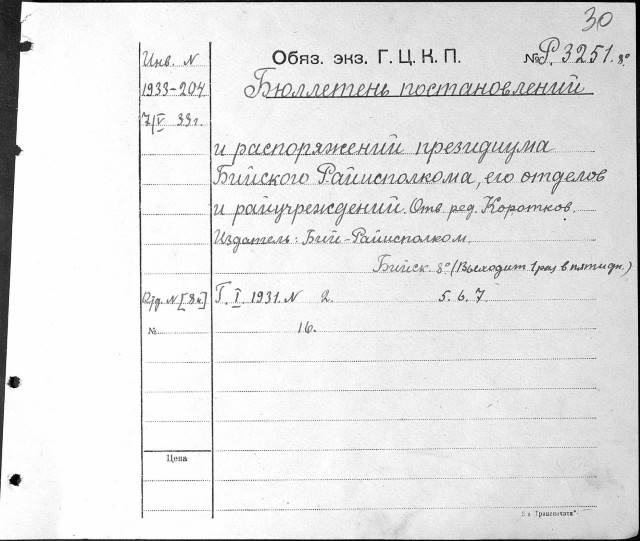 30
Инв. N
1933-204
7/V 33 г.
Обяз. экз. Г. Ц. К. П.
№ Р. 3251. 8°
Бюллетень постановлений
и распоряжений президиума
Бийского Райисполкома, его отделов
и райучреждений. Отв ред. Коротков.
Издатель: Бий-Райисполком.
Бийск. 8° (Выходит 1 раз в пятидн.)
Г. I. 1931. N 2. 5. 6. 7
№ 16.
Цена